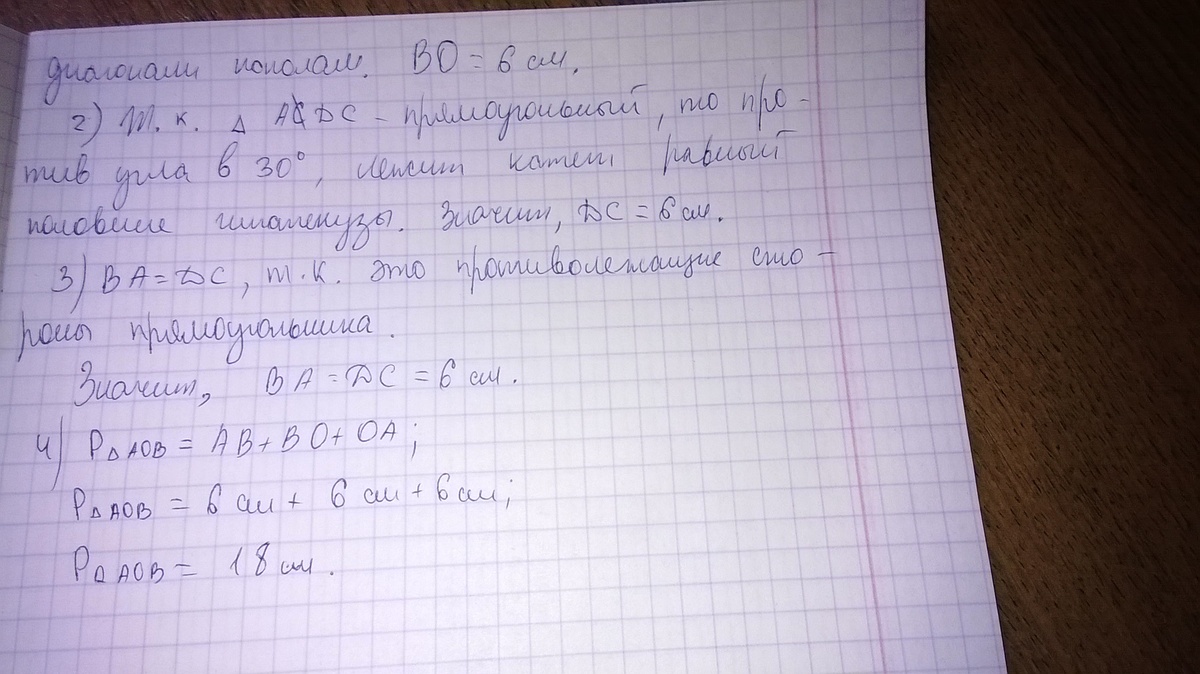 диагонали пополам. BO = 6 см.
2) Т. к. △ ADC - прямоугольный, то про -
тив угла в 30°, лежит катет равный
половине гипотенузы. Значит, DC = 6 см.
3) BA = DC, т. к. это противолежащие сто -
роны прямоугольника.
Значит, BA = DC = 6 см.
4) P△AOB = AB + BO + OA;
P△AOB = 6 см + 6 см + 6 см;
P△AOB = 18 см.